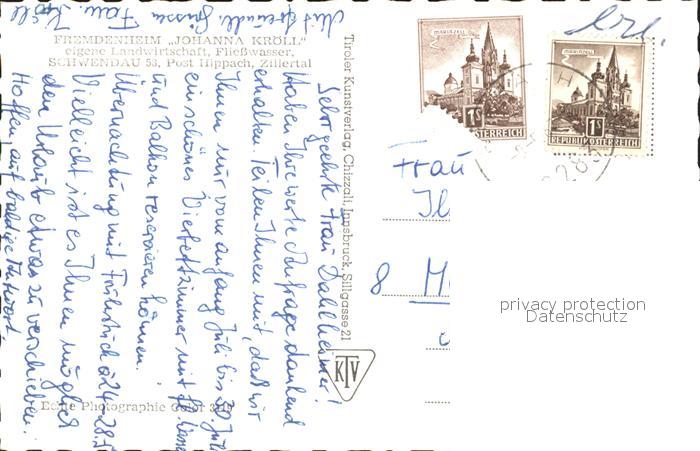 Mit freundl. Grüssen Fam. Kröll
FREMDENHEIM „JOHANNA KRÖLL"
eigene Landwirtschaft, Fließwasser,
SCHWENDAU 53, Post Hippach, Zillertal
Sehr geehrte Frau
Haben Ihre werte Anfrage dankend
erhalten. Teilen Ihnen mit, daß wir
Ihnen nur vom anfang Juli bis 20. Juli
ein schönes Vierbettzimmer mit
und Balkon reservieren können.
Übernachtung mit Frühstück a 24-28.S
Vielleicht ist es Ihnen möglich
den Urlaub etwas zu verschieben.
Hoffen auf baldige Antwort
Echte Photographie Color
Tiroler Kunstverlag, Chizzali, Innsbruck, Sillgasse 21
KTV
MARIAZELL
1S
ÖSTERREICH
MARIAZELL
1S
REPUBLIK ÖSTERREICH
Frau
8 M
privacy protection
Datenschutz